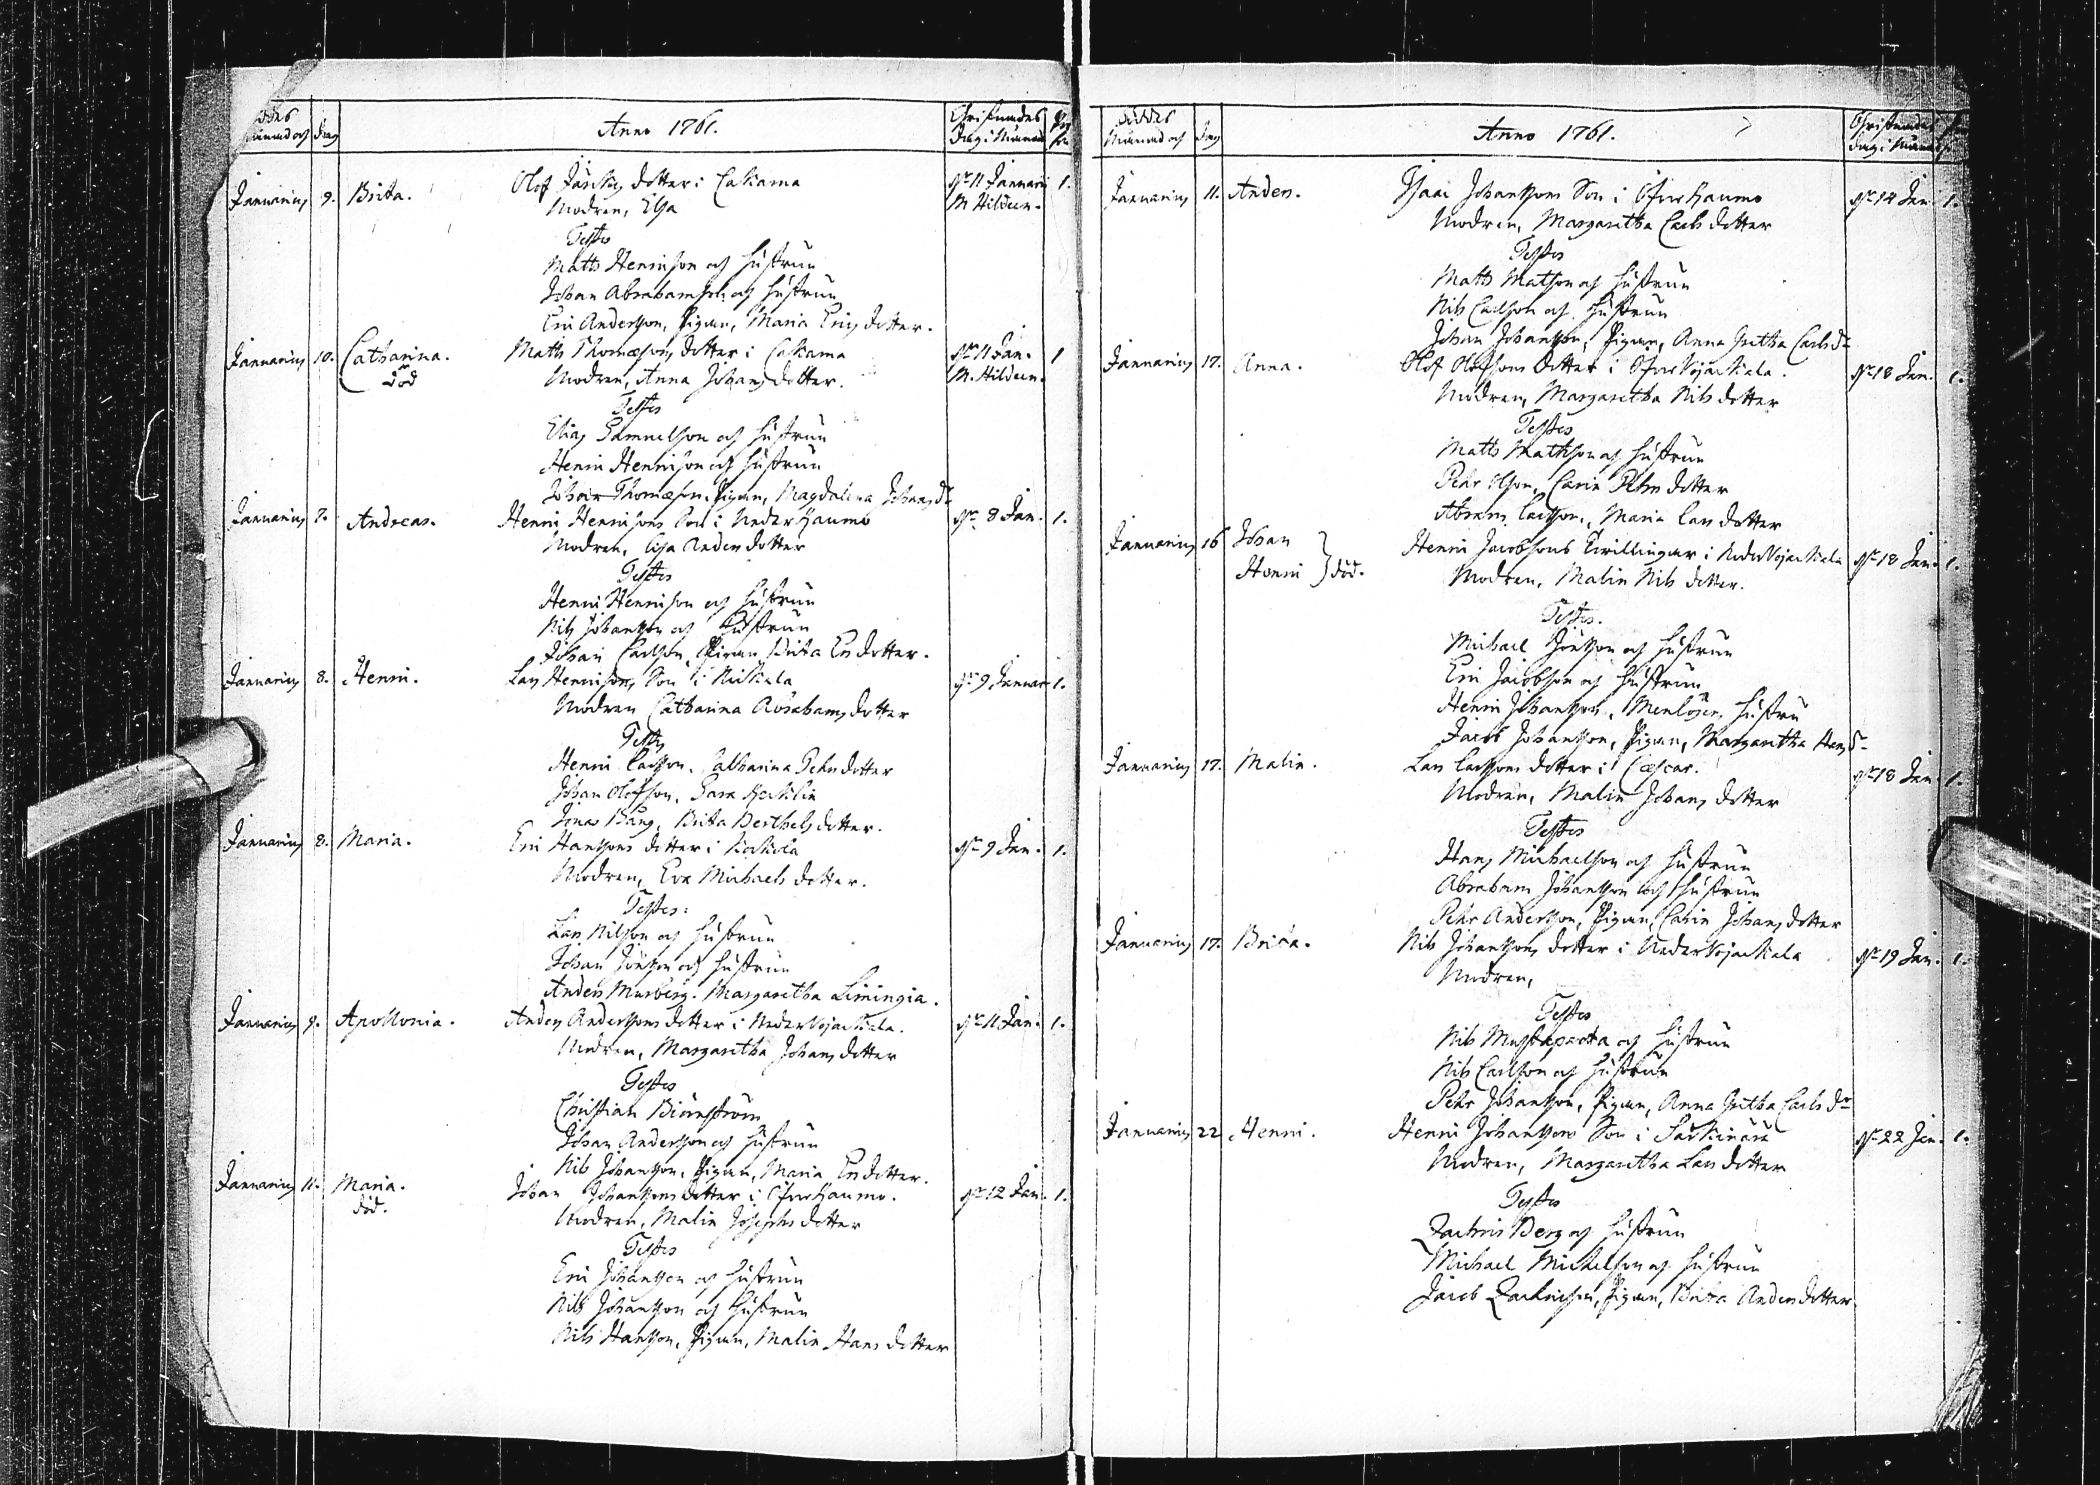 Anno 1761.
Christnades
dag i Månad
Månad och dag
Januarius 9. Brita. Olof dotter i Caskama dn 11 Januari 1.
Modren, Elsa M Hildeen.
Testes
Matts Henricson och Hustrun
Johan Abrahamson och Hustrun
Eric Andersson, Pigan, Maria Erics dotter.
Januarius 10. Catharina. Matts Thomæsons dotter i Caskama dn 11 Jan. 1
död Modren, Anna Johans dotter. M. Hildeen.
Testes
Elias Samuelson och Hustrun
Henric Henricson och Hustrun
Johan Thomæson, Pigan, Magdalena Johans dr
Januarius 7. Andreas. Henric Henricsons Son i Neder Haumo dn 8 Jan. 1.
Modren, Elsa Anders dotter
Testes
Henric Henricson och Hustrun
Nils Johansson och Hustrun
Johan Carlson, Pigan Brita Ers dotter.
Januarius 8. Henric. Lars Henricsons Son i dn 9 Januar 1.
Modren Catharina Abrahams dotter
Testes
Henric Larsson, Catharina Pehrs dotter
Johan Olofson, Sara
Jonas Bång, Brita Berthels dotter.
Januarius 8. Maria. Eric Hanssons dotter i dn 9 Jan. 1.
Modren, Eva Michaels dotter.
Testes:
Lars Nilson och Hustrun
Johan Jönsson och Hustrun
Anders Murberg. Margaretha Limingia.
Januarius 9. Apollonia. Anders Anderssons dotter i Neder Vojackala. dn 11 Jan. 1.
Modren, Margaretha Johans dotter
Testes
Christian Biörnström
Johan Andersson och Hustrun
Nils Johansson, Pigan, Maria Ers dotter.
Januarius 11. Maria. Johan Johanssons dotter i Öfver Haumo. dn 12 Jan. 1.
död. Modren, Malin Josephs dotter
Testes
Eric Johansson och Hustrun
Nils Johansson och Hustrun
Nils Hansson, Pigan, Malin Hans dotter
Anno 1761.
Månad och dag
Christnades
dag i Månad
Januarius 11. Anders. Isaac Johanssons Son i Öfver Haumo dn 14 Jan 1.
Modren, Margaretha Carls dotter
Testes
Matts Matsson och Hustrun
Nils Carlson och Hustrun
Johan Johansson, Pigan, Anna Gretha Carls dr
Januarius 17. Anna. Olof Olofsons dotter i Öfver Vojackala. dn 18 Jan. 1.
Modren, Margaretha Nils dotter
Testes
Matts Mathson och Hustrun
Pehr Olson, Carin Pehrs dotter
Abram Larsson, Maria Lars dotter
Januarius 16 Johan Henric Jacobsons Tvillingar i Neder Vojackala dn 18 Jan. 1.
Henric } död. Modren, Malin Nils dotter.
Testes.
Michael Jönsson och Hustrun
Eric Jacobson och Hustrun
Henric Johansson, Hustru
Jacob Johansson, Pigan, Margaretha Hans dr
Januarius 17. Malin. Lars Larssons dotter i dn 18 Jan 1.
Modren, Malin Johans dotter
Testes
Hans Michaelson och Hustrun
Abraham Johansson och Hustrun
Pehr Andersson, Pigan, Carin Johans dotter
Januarius 17. Brita. Nils Johanssons dotter i Neder Vojackala dn 19 Jan. 1.
Modren,
Testes
Nils Mustaparta och Hustrun
Nils Carlson och Hustrun
Pehr Johansson, Pigan, Anna Gretha Carls dr
Januarius 22 Henric. Henric Johanssons Son i dn 22 Jan. 1.
Modren, Margaretha Lars dotter
Testes
Zachris Berg och Hustrun
Michael Michelson och Hustrun
Jacob Zachrison, Pigan, Brita Anders dotter.